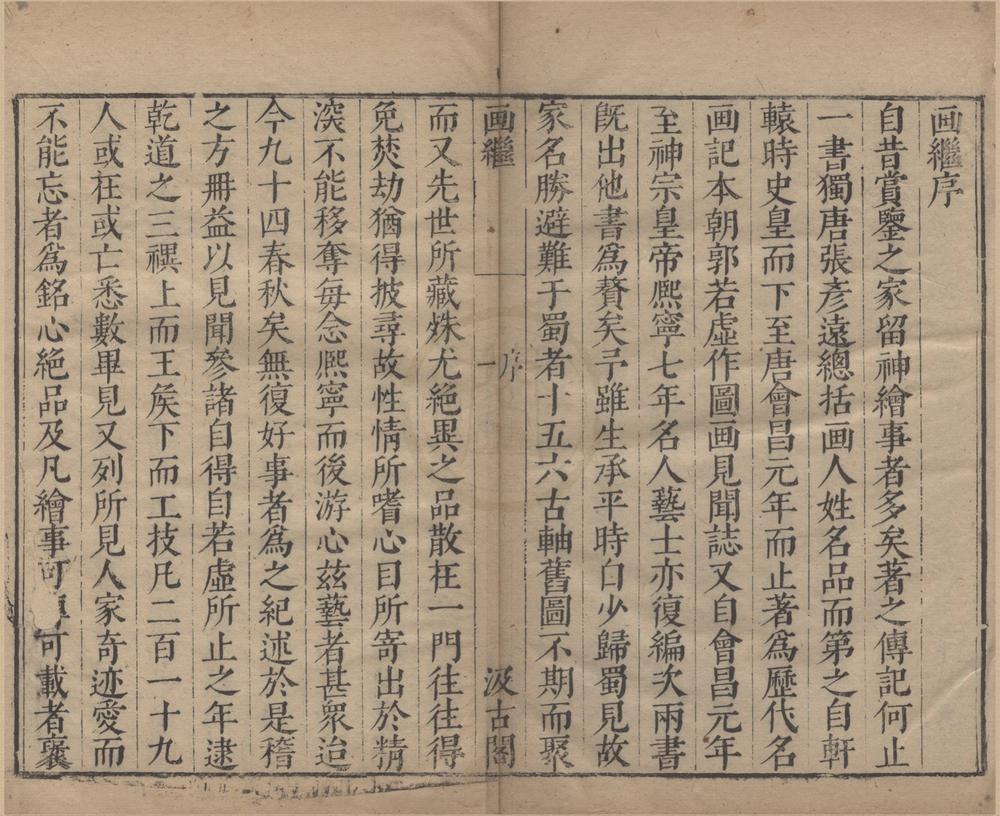 画繼序
自昔賞鑒之家留神繪事者多矣著之傳記何止
一書獨唐張彥遠總括画人姓名品而第之自軒
轅時史皇而下至唐會昌元年而止著爲歷代名
画記本朝郭若虛作圖画見聞誌又自會昌元年
至神宗皇帝熈寧七年名人藝士亦復編次兩書
旣出他書爲贅矣予雖生承平時自少歸蜀見故
家名勝避難于蜀者十五六古軸舊圖不期而聚
画繼 序 一 汲古閣
而又先世所藏姝尤絕異之品散在一門往往得
免焚劫猶得披尋故性情所嗜心目所寄出於精
深不能移奪每念熈寧而後游心茲藝者甚衆迨
今九十四春秋矣無復好事者爲之紀述於是稽
之方冊益以見聞參諸自得自若虛所止之年逮
乾道之三禩上而王矦下而工技凡二百一十九
人或在或亡悉數畢見又列所見人家奇迹愛而
不能忘者爲銘心絕品及凡繪事可可載者裒